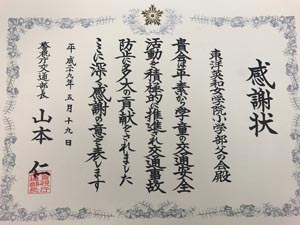 感謝状
東洋英和女学院小学部父の会殿
貴会は平素から学童の交通安全
活動を積極的に推進され交通事故
防止に多大の貢献をされました
ここに深く感謝の意を表します
平成二十九年五月十九日
警視庁交通部長
山本仁